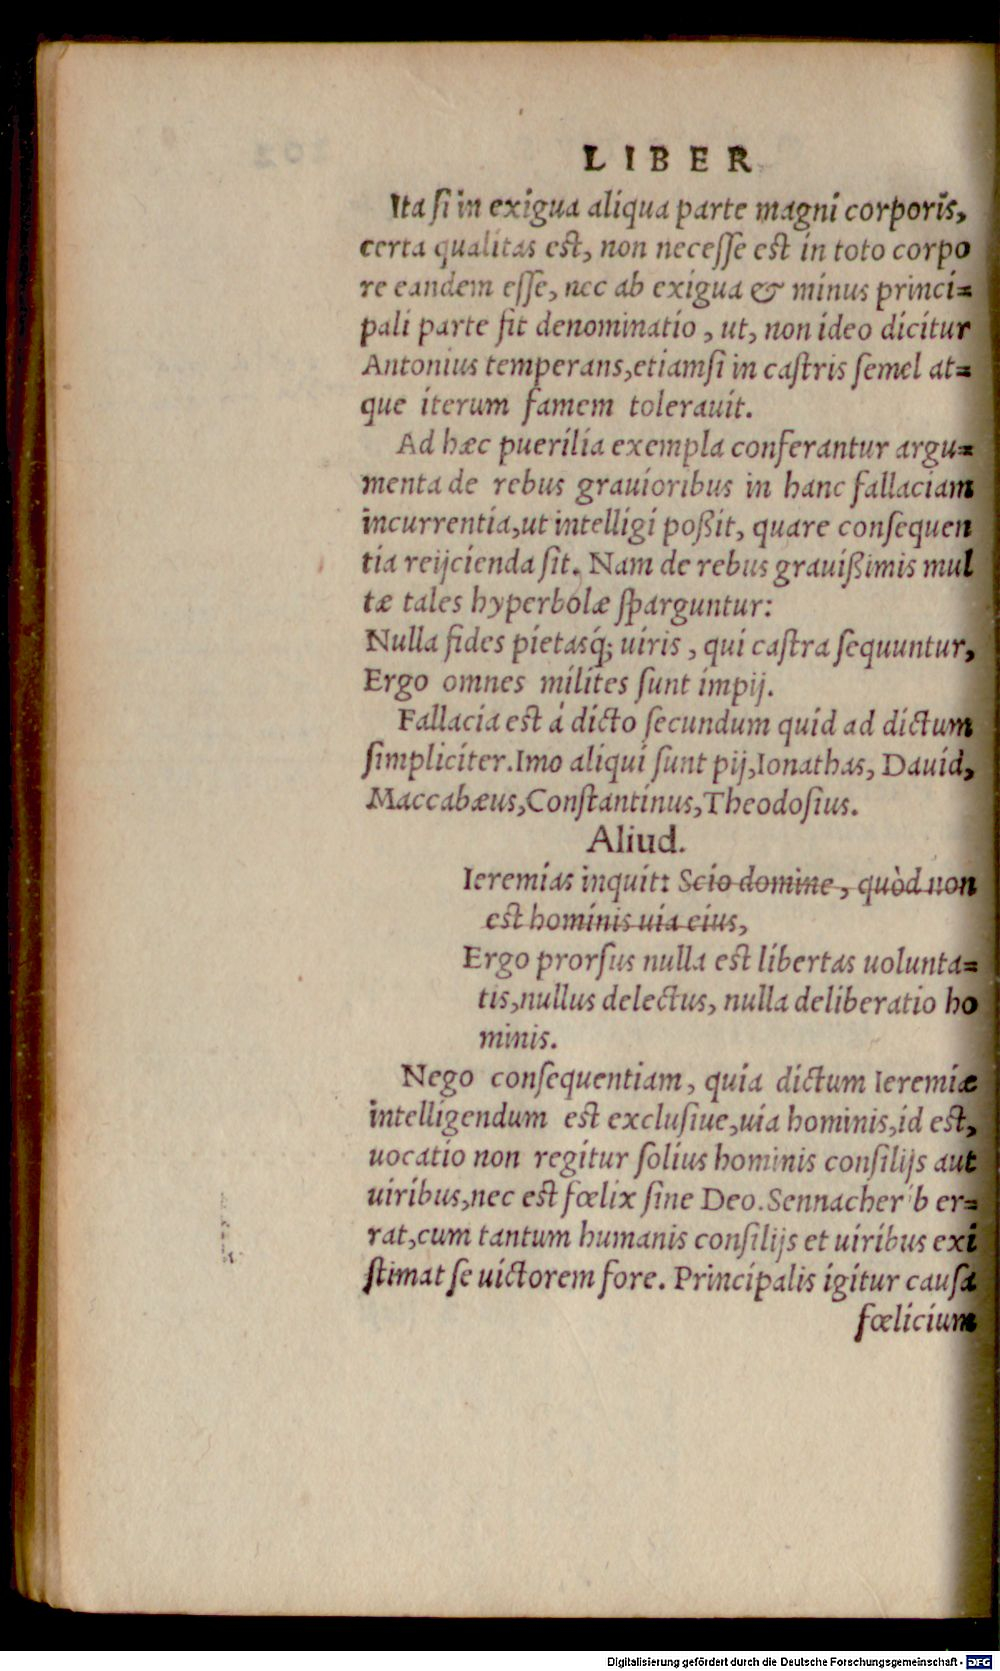 LIBER
Ita ſi in exigua aliqua parte magni corporis,
certa qualitas est, non neceſſe est in toto corpo
re eandem eſſe, nec ab exigua & minus princi=
pali parte fit denominatio, ut, non ideo dicitur
Antonius temperans, etiamſi in caſtris ſemel at=
que iterum famem tolerauit.
Ad hæc puerilia exempla conferantur argu=
menta de rebus grauioribus in hanc fallaciam
incurrentia, ut intelligi poßit, quare conſequen
tia reijcienda ſit. Nam de rebus grauißimis mul
tæ tales hyperbolæ ſparguntur:
Nulla fides pietasq́; uiris, qui caſtra ſequuntur,
Ergo omnes milites ſunt impij.
Fallacia est á dicto ſecundum quid ad dictum
ſimpliciter. Imo aliqui ſunt pij, Ionathas, Dauid,
Maccabæus, Conſtantinus, Theodoſius.
Aliud.
Ieremias inquit: Scio domine, quòd non
est hominis uia eius,
Ergo prorſus nulla est libertas uolunta=
tis, nullus delectus, nulla deliberatio ho
minis.
Nego conſequentiam, quia dictum Ieremiæ
intelligendum est excluſiue, uia hominis, id est,
uocatio non regitur ſolius hominis conſilijs aut
uiribus, nec est fœlix ſine Deo. Sennacherib er=
rat, cum tantum humanis conſilijs et uiribus exi
ſtimat ſe uictorem fore. Principalis igitur cauſa
fœlicium
Digitalisierung gefördert durch die Deutsche Forschungsgemeinschaft - DFG